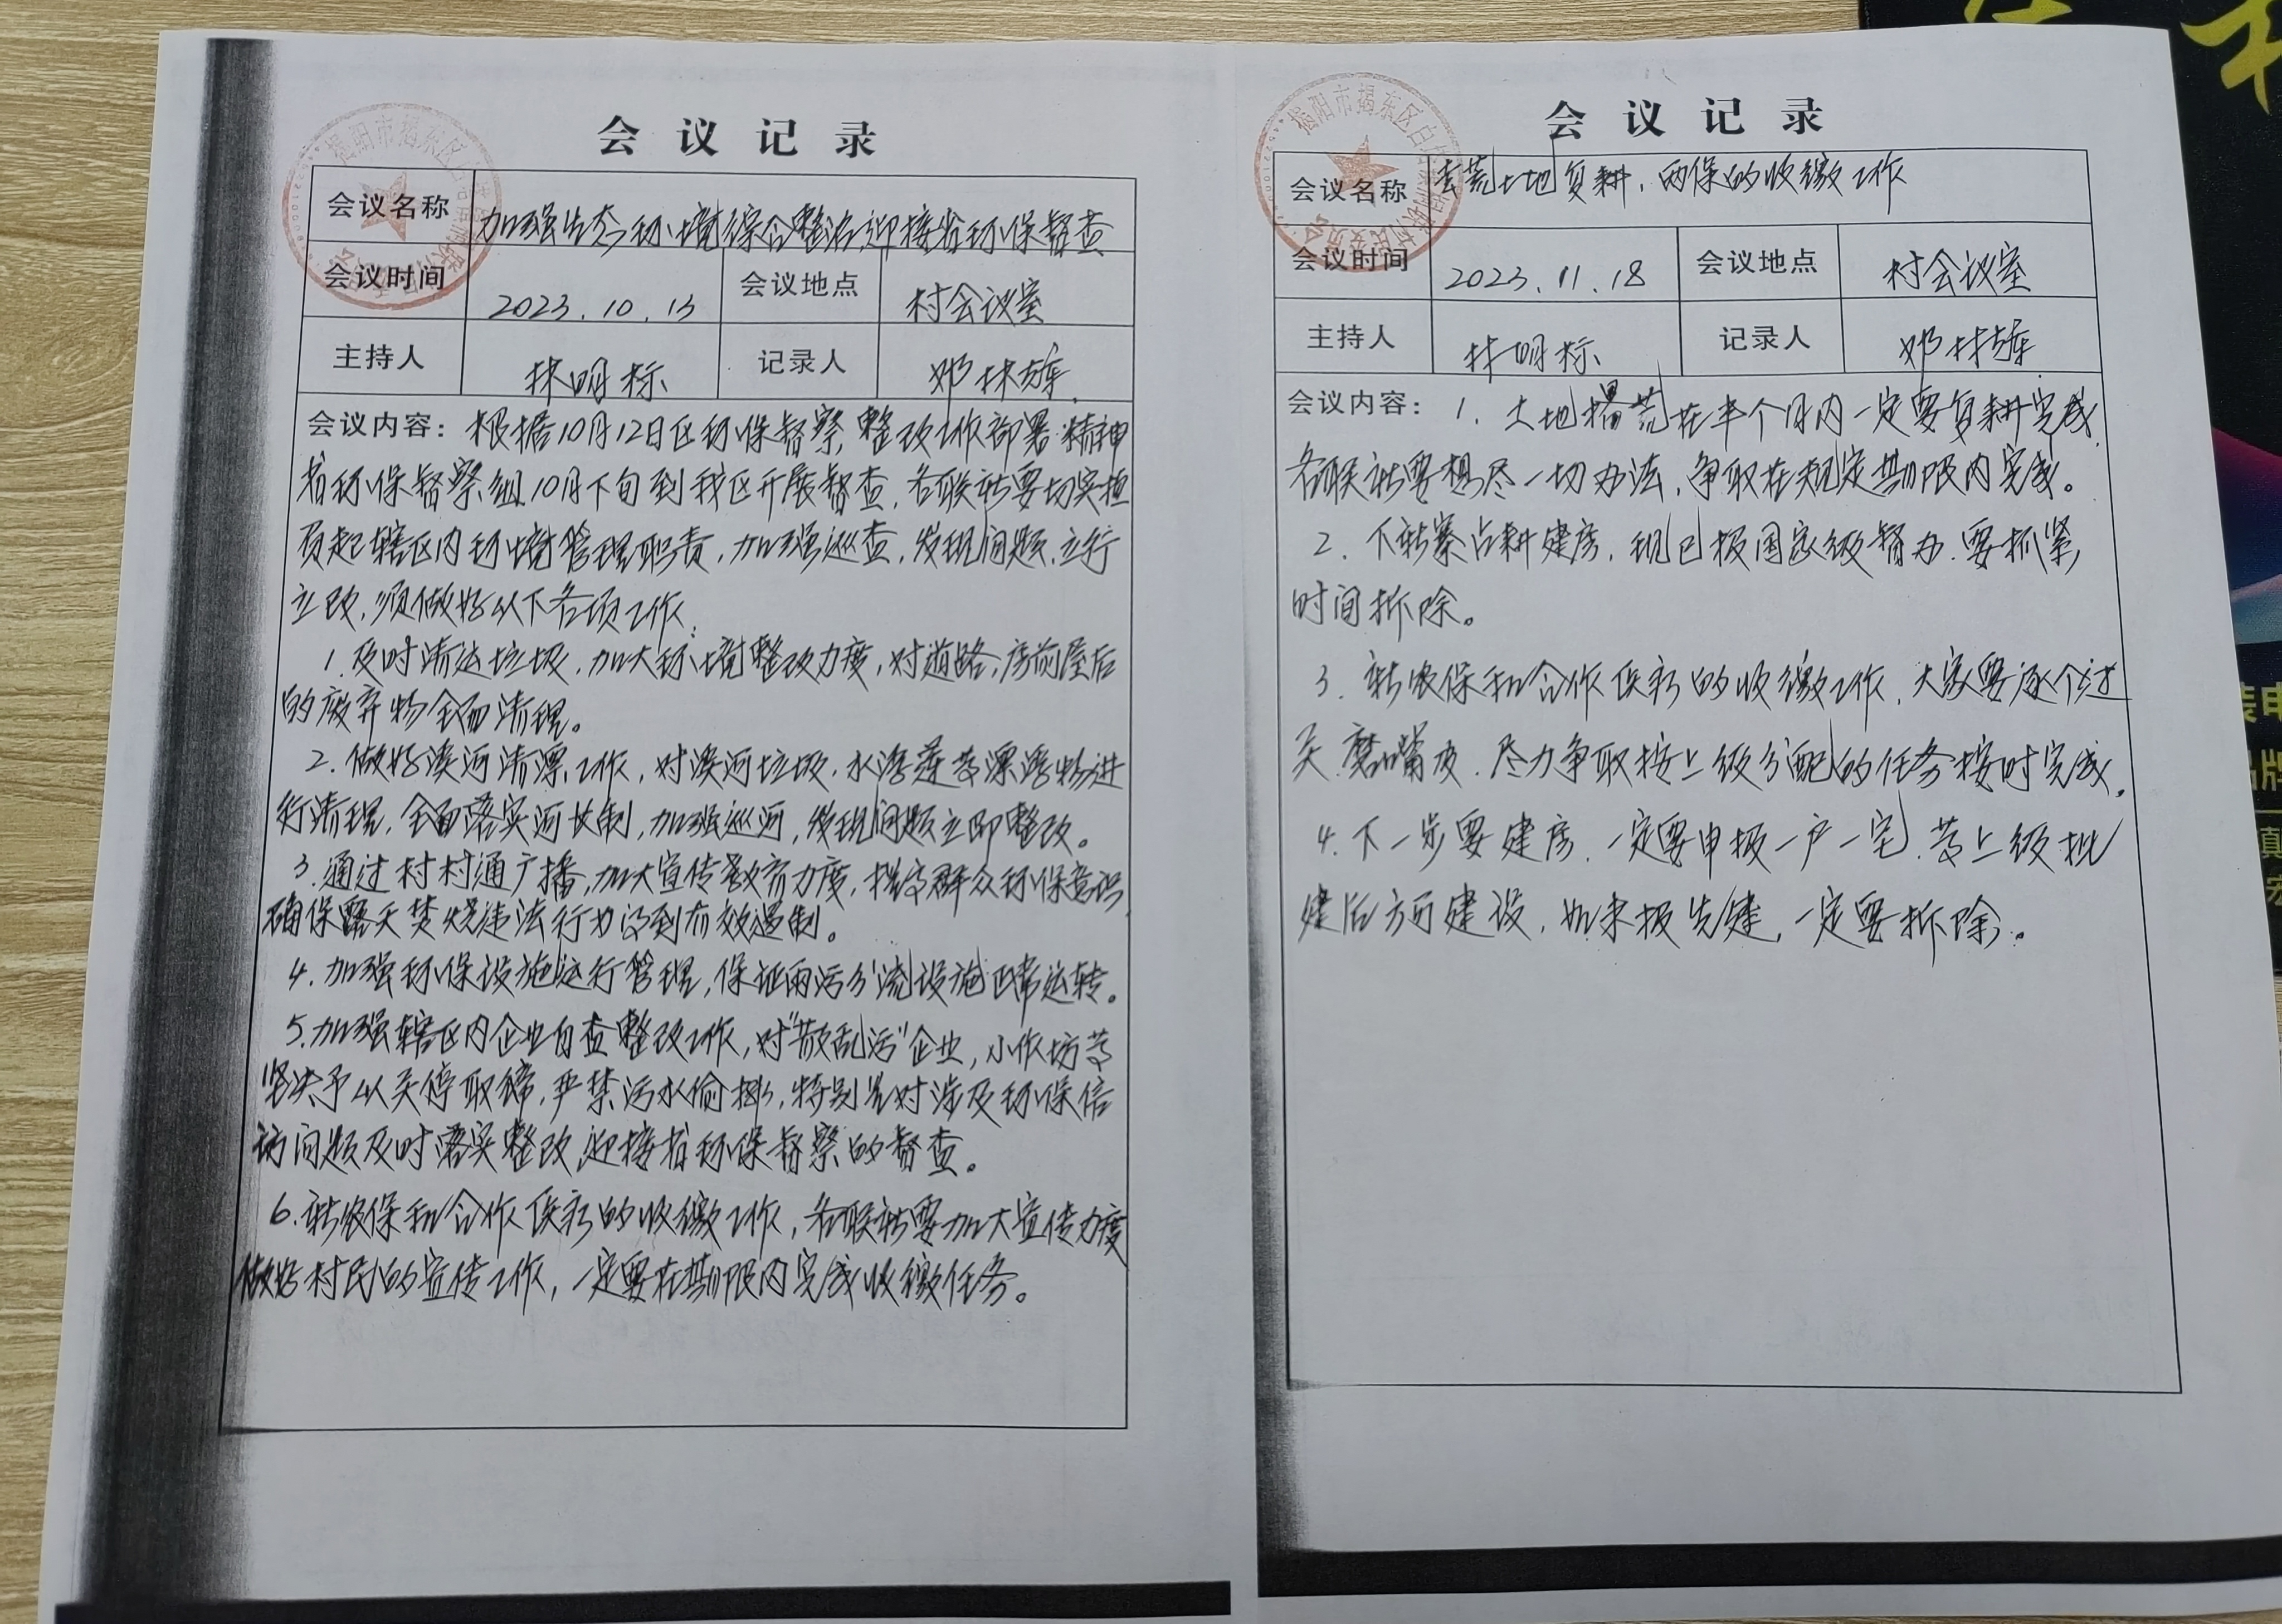 会议记录
会议名称 加强生态环境综合整治迎接省环保督查
会议时间 2023.10.13 会议地点 村会议室
主持人 林明标 记录人 邓林雄
会议内容：根据10月12日区环保督察，整改工作部署精神
省环保督察组10月下旬到我区开展督查，各联社要切实担
负起辖区内环境管理职责，加强巡查，发现问题，立行
立改，须做好以下各项工作：
1.及时清运垃圾，加大环境整改力度，对道路，房前屋后
的废弃物全面清理。
2.做好溪河清漂工作，对溪河垃圾，水浮莲等漂浮物进
行清理，全面落实河长制，加强巡河，发现问题立即整改。
3.通过村村通广播，加大宣传教育力度，提高群众环保意识，
确保露天焚烧违法行为得到有效遏制。
4.加强环保设施运行管理，保证雨污分流设施正常运转。
5.加强辖区内企业自查整改工作，对“散乱污”企业，小作坊等
坚决予以关停取缔，严禁污水偷排，特别是对涉及环保信
访问题及时落实整改，迎接省环保督察的督查。
6.新农保和合作医疗的收缴工作，各联社要加大宣传力度
做好村民的宣传工作，一定要在期限内完成收缴任务。
会议记录
会议名称 丢荒土地复耕，两保的收缴工作
会议时间 2023.11.18 会议地点 村会议室
主持人 林明标 记录人 邓林雄
会议内容：1.土地撂荒在半个月内一定要复耕完成，
各联社要想尽一切办法，争取在规定期限内完成。
2.下新寨占耕建房，现已报国家级督办，要抓紧
时间拆除。
3.新农保和合作医疗的收缴工作，大家要逐个过
关，磨嘴皮，尽力争取按上级分配的任务按时完成。
4.下一步要建房，一定要申报一户一宅，等上级批
建后方可建设，如未报先建，一定要拆除。